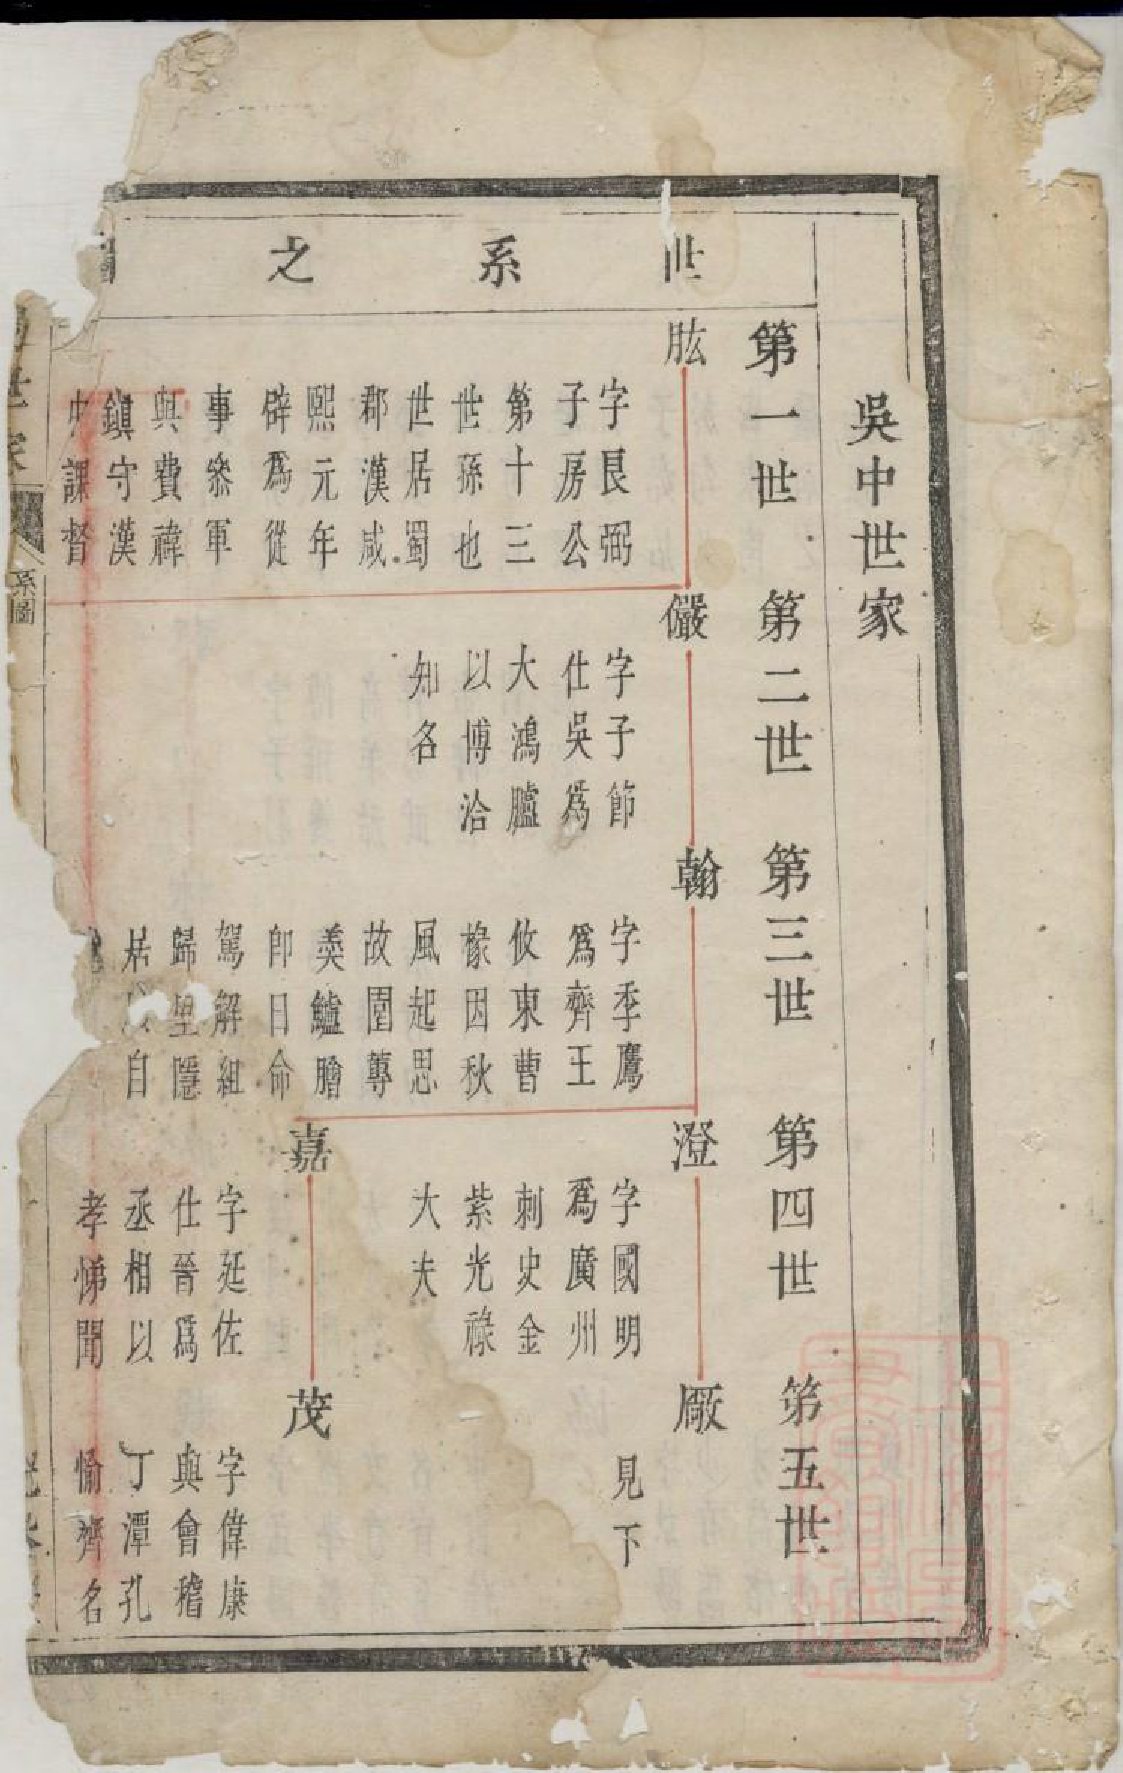 吳中世家
世系之圖
第一世
第二世
第三世
第四世
第五世
肱
字艮弼
子房公
第十三
世孫也
世居蜀
郡漢咸
熙元年
辟爲從
事叅軍
與費禕
鎮守漢
中課督
儼
字子節
仕吳爲
大鴻臚
以博洽
知名
翰
字季鷹
爲齊王
攸東曹
椽因秋
風起思
故園蓴
羮鱸膾
卽日命
駕解組
歸里隱
居以自
澄
字國明
爲廣州
刺史金
紫光祿
大夫
嘉
字延佐
仕晉爲
丞相以
孝悌聞
厰
見下
茂
字偉康
與會稽
丁潭孔
愉齊名
世家
系圖